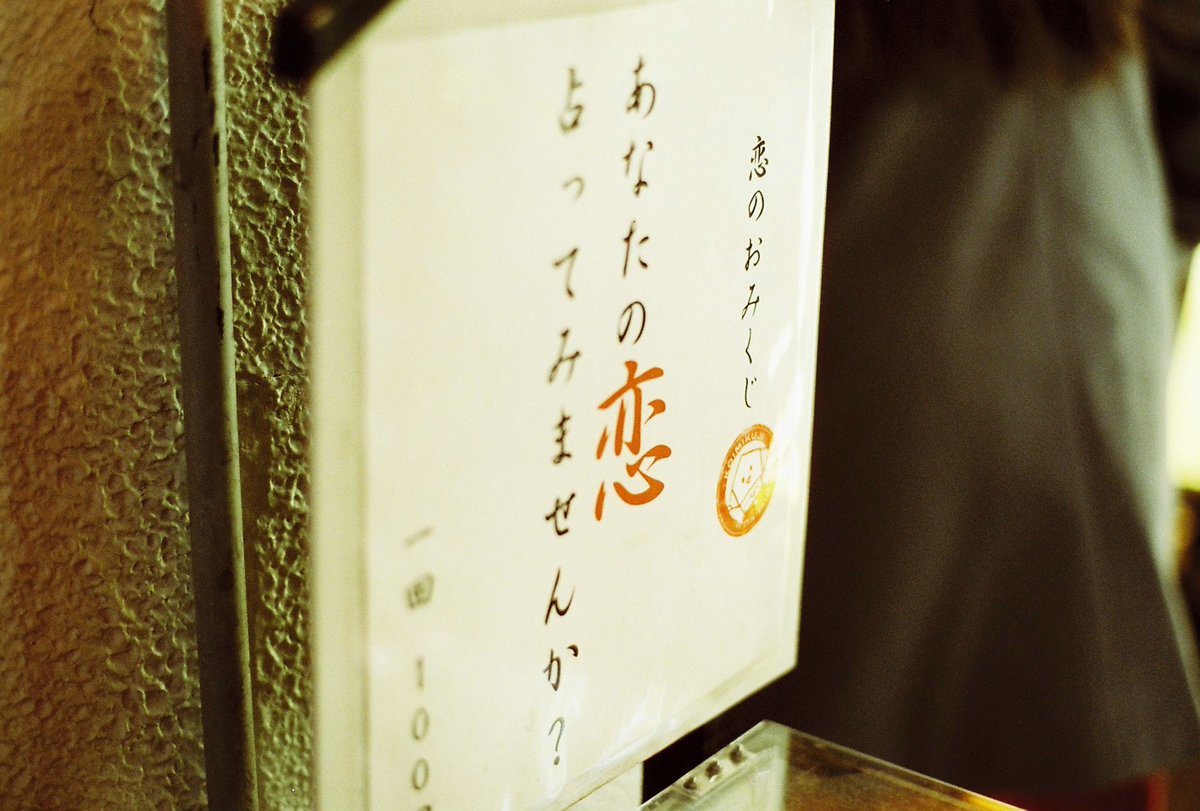 恋のおみくじ
KOIMIKUJI
あなたの恋
占ってみませんか?
一回 100